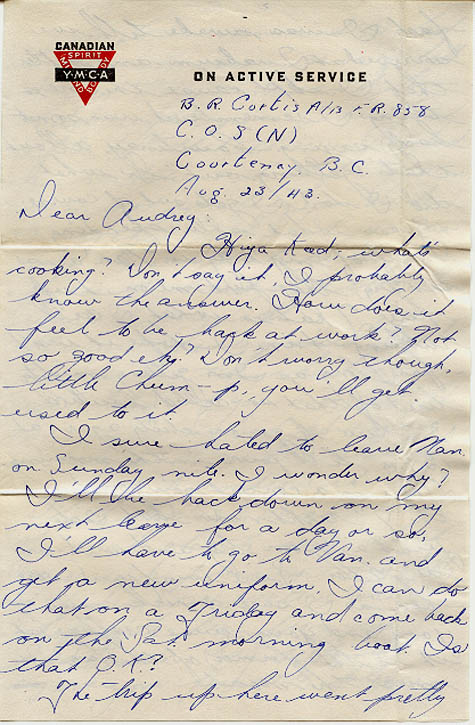 CANADIAN
SPIRIT
Y·M·C·A
MIND BODY
ON ACTIVE SERVICE
B. R. Curtis A/B V.R. 858
C.O.S (N)
Courtenay, B.C.
Aug. 23/43.
Dear Audrey:
Hiya Kad; what's
cooking? Don't say it, I probably
know the answer. How does it
feel to be back at work? Not
so good eh? Don't worry though,
little Chum-p, you'll get
used to it.
I sure hated to leave Nan.
on Sunday nite. I wonder why?
I'll be back down on my
next leave for a day or so.
I'll have to go to Van. and
get a new uniform. I can do
that on a Friday and come back
on the Sat. morning boat. Is
that O.K?
The trip up here went pretty